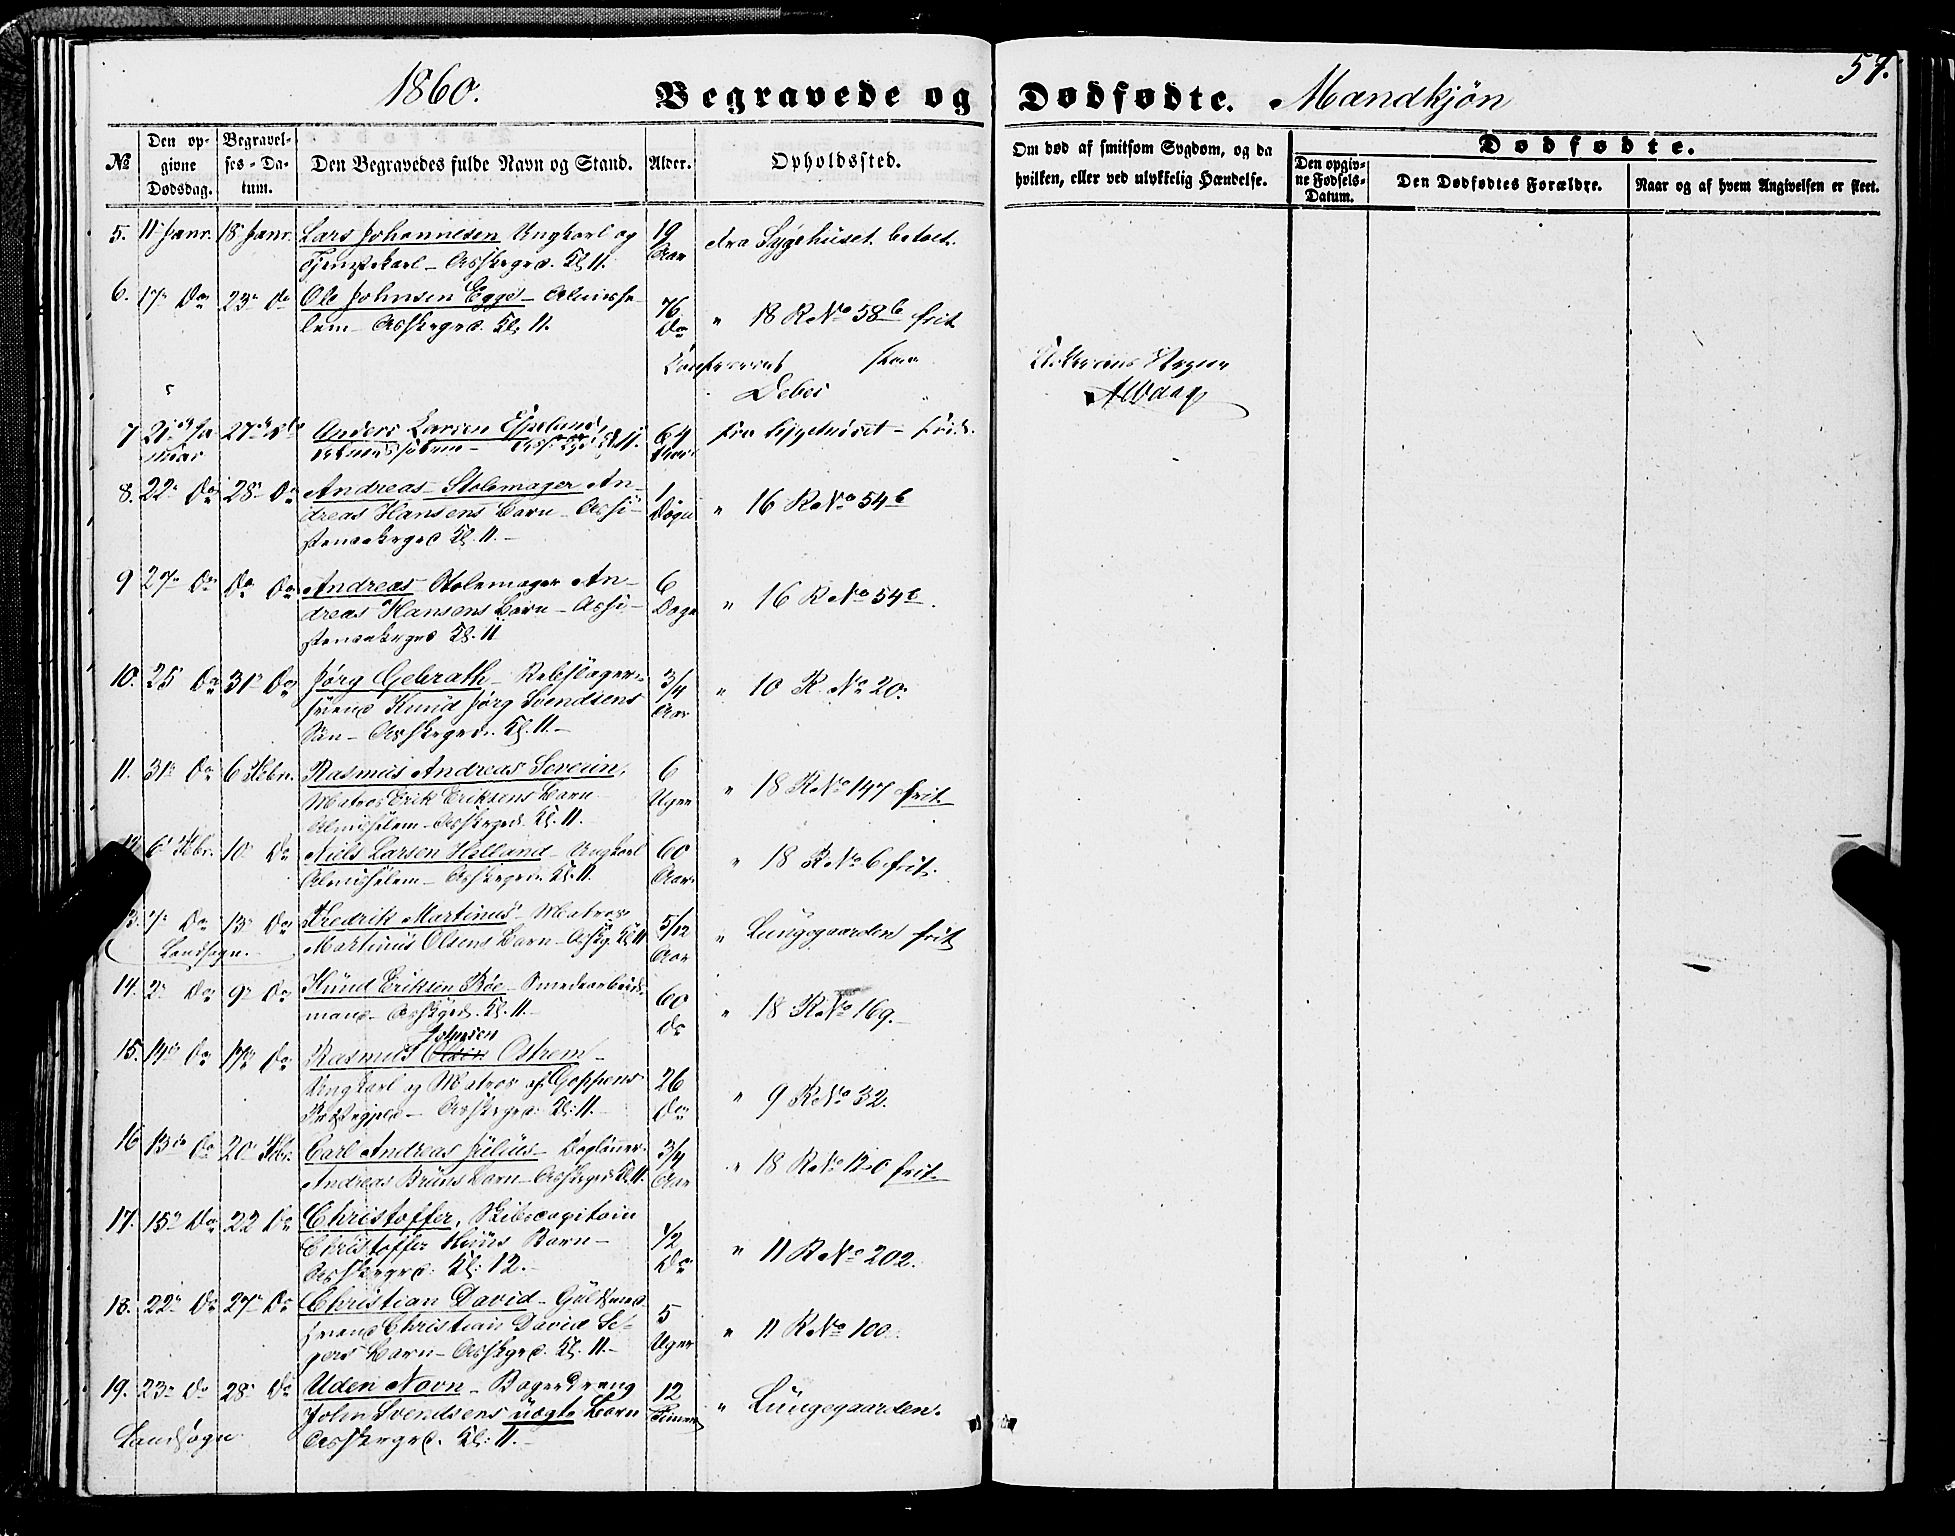 57.
1860. Begravede og Dødfødte. Mandkjøn
Dødfødte.
№ Den opgivne Dødsdag. Begravelses-Datum. Den Begravedes fulde Navn og Stand. Alder. Opholdssted. Om død af smitsom Sygdom, og da hvilken, eller ved ulykkelig Hændelse. Den opgivne Fødsels-Datum. Den Dødfødtes Forældre. Naar og af hvem Angivelsen er skeet.
5. 11 Janr. 18 Janr. Lars Johannesen Ungkarl og 19 fra Sygehuset betalt.
Tjenstekarl - Asskrgrd. Kl. 11. Aar
6. 17 Do 23 Do Ole Johnsen Egge - Almisse 76 " 18 R No 58 b frit
lem - Asskrgrd. Kl. 11. Do
Debes
7 21 27 Anders Larsen Espeland, 64 fra Sygehuset - frit.
Kl. 11. Aar
8. 22 Do 28 Do Andreas - Stolemager An- 1 " 16 R No 54 b
dreas Hansens Barn - Assi- Døgn
stenceskrgrd Kl. 11.-
9 27 Do Do Do Andreas Stolemager An- 6 " 16 R No 54 b.
dreas Hansens Barn - Assi- Dage
stenceskrgrd Kl. 11
10. 25 Do 31 Do Jørg Gebrath - Rebslager- 3/4 " 10 R. No 20.
svend Knud Jørg Svendsens Aar
Søn - Asskrgrd. Kl. 11.-
11. 31 Do 6 Febr. Rasmus Andreas Severin, 6 " 18 R No 147 frit.
Matros Erik Eriksens Barn Uger
Almisselem - Asskrgrd. Kl. 11.
6 Febr. 10 Do Niels Larsen Helland - Ungkarl 60 " 18 R No 6 frit.
Almisselem - Asskrgrd. Kl. 11. Aar.
7 Do 13 Do Fredrik Martinus - Matros 5/12 " Lungegaarden frit
Landsogn. Martinus Olsens Barn - Asskg. Kl 11 Aar
14. 2 Do 9 Do Knud Eriksen Bøe - 60 " 18 R No 169.
mand - Asskrgrd. Kl. 11.- do
Johnsen
15. 14 Do 17 Do Rasmus Olsen Østrem -
Ungkarl og Matros af 26 " 9 R No 32.
Asskrgrd. Kl: 11.- Do
16 13 Do 20 Febr. Carl Andreas Julius - Dagløner 3/4 " 18 R No 120 frit.
Andreas Bruns Barn - Asskrgrd Kl. 11. Aar
17. 15 Do 22 Do Christoffer, Skibscapitain 1/2 " 11 R No 202.
Christoffer Huus Barn - Do
Asskrgrd: Kl: 12.-
18. 22 Do 27 Do Christian David - Guldsmed 5 " 11 R No 100.
svend Christian David Barn - Asskrgrd. Kl. 11.- Uger
19. 23 Do 28 Do Uden Navn - Bagerdreng 12 " Lungegaarden.
John Svendsens uægte Barn Timer
Landsogn. Asskrgrd. Kl: 11.-